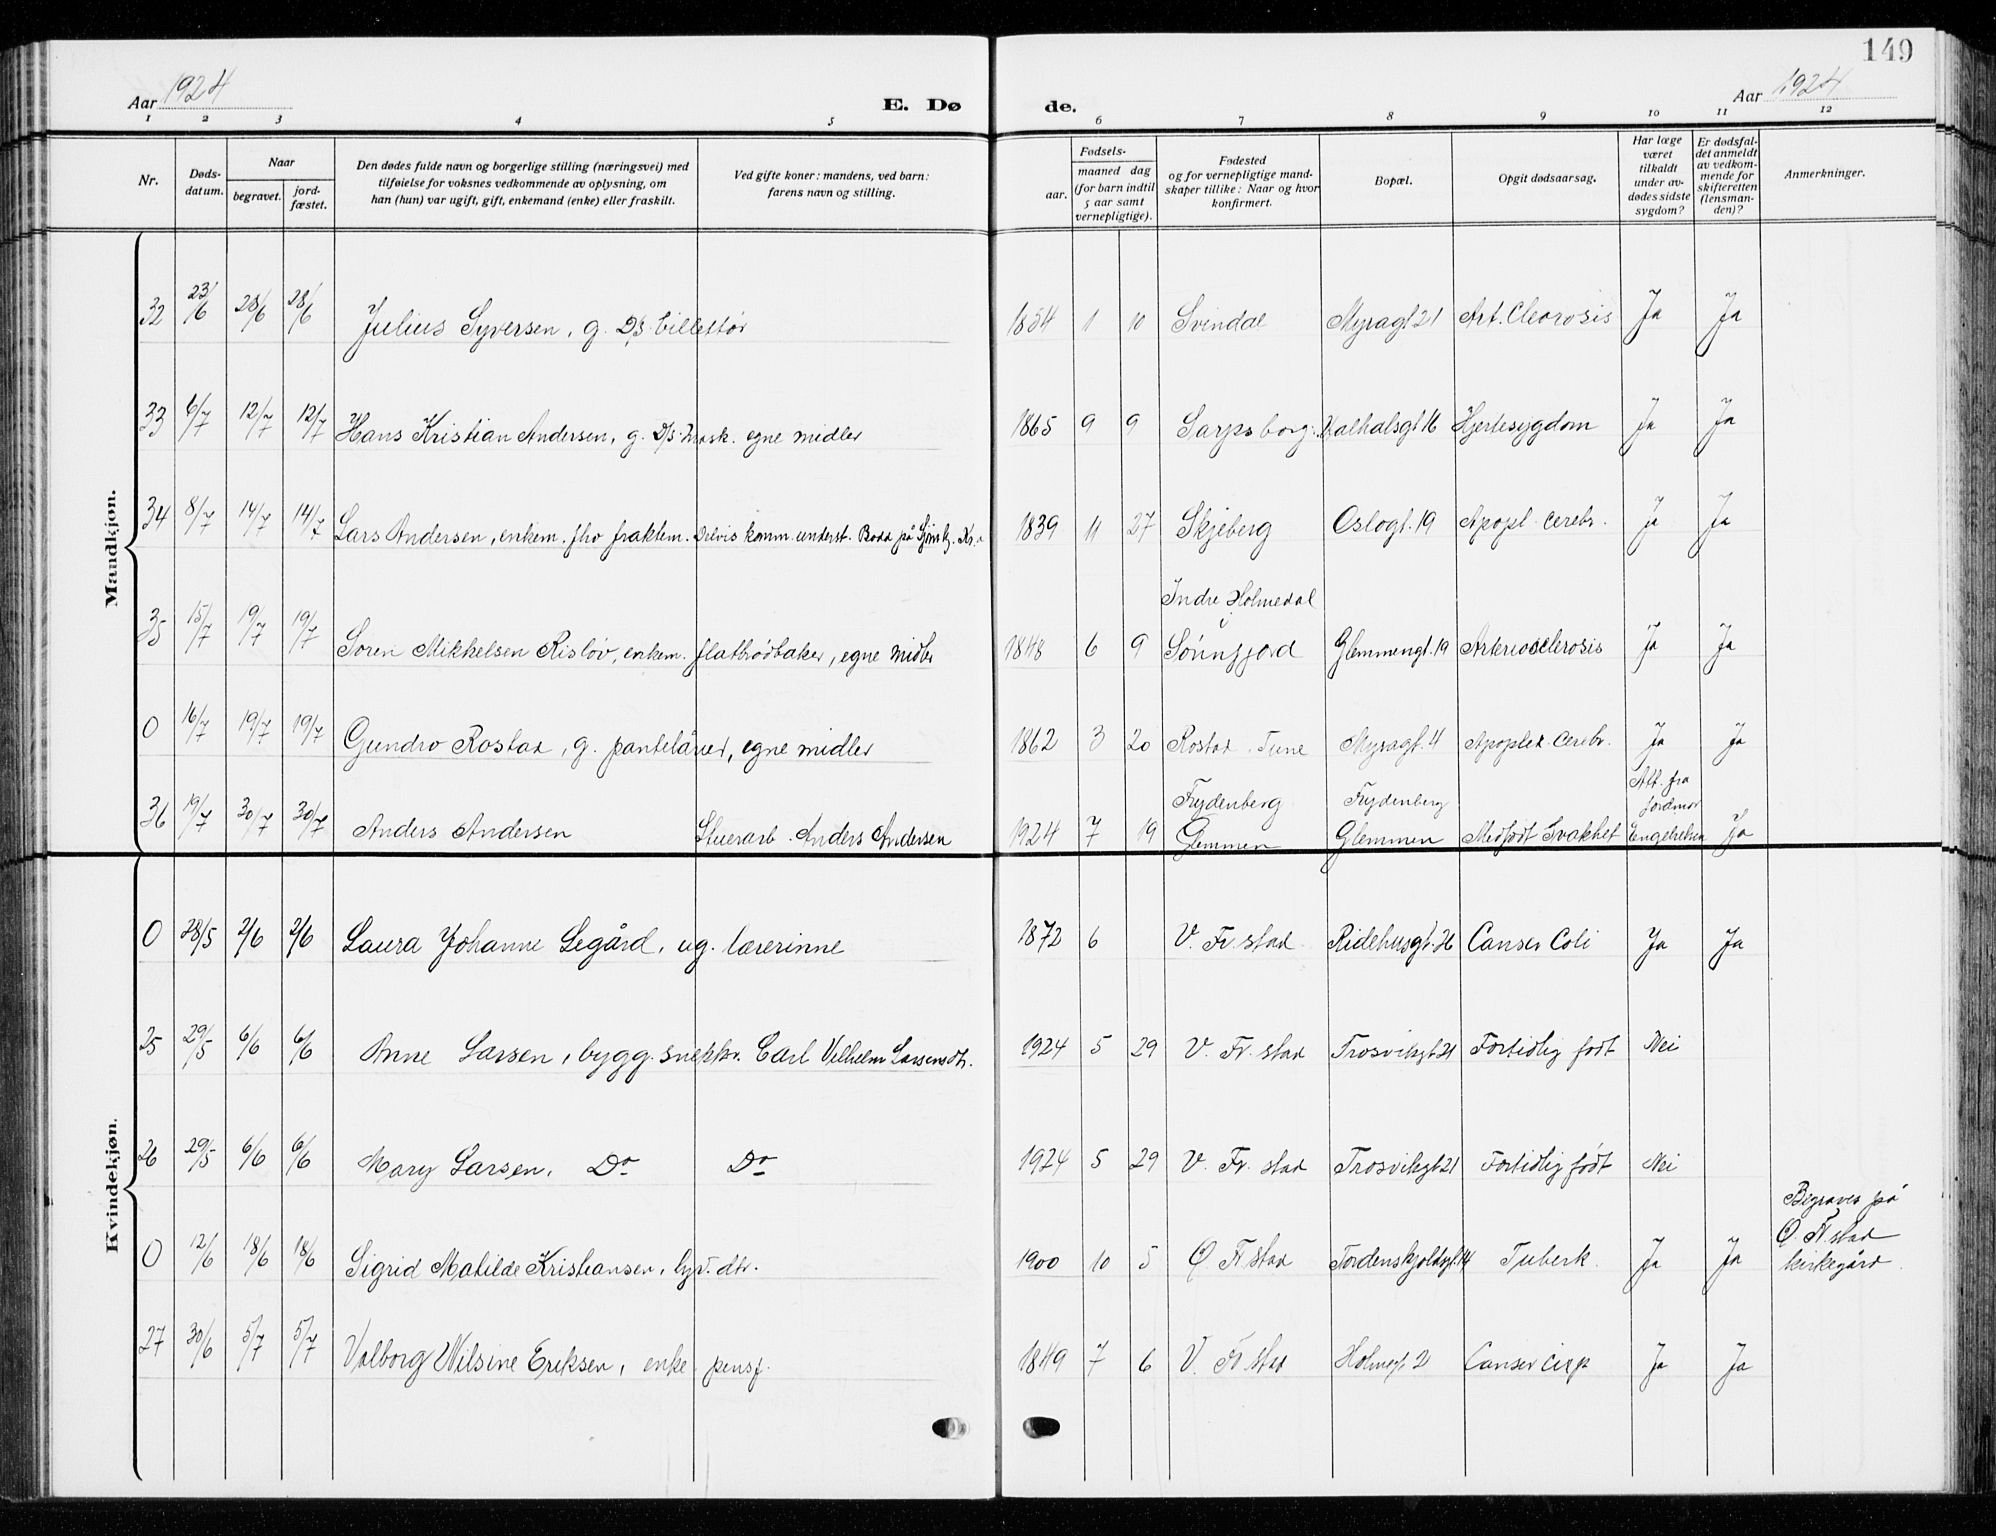 149
Aar 1924 E. Dø de. Aar 1924
1 2 3 4 5 6 7 8 9 10 11 12
Nr.
Døds-
datum.
Naar
begravet.
jord-
fæstet.
Den dødes fulde navn og borgerlige stilling (næringsvei) med
tilføielse for voksnes vedkommende av oplysning, om
han (hun) var ugift, gift, enkemand (enke) eller fraskilt.
Ved gifte koner: mandens, ved barn:
farens navn og stilling.
Fødsels-
aar.
maaned dag
(for barn indtil
5 aar samt
vernepligtige).
Fødested
og for vernepligtige mand-
skaper tillike: Naar og hvor
konfirmert.
Bopæl.
Opgit dødsaarsag.
Har læge
været
tilkaldt
under av-
dødes sidste
sygdom?
Er dødsfal-
det anmeldt
av vedkom-
mende for
skifteretten
(lensman-
den)?
Anmerkninger.
Mandkjøn.
32 23/6 28/6 28/6 Julius Syversen, g. D/S. billettør 1854 1 10 Svindal Myragt 21 Art. Cleorosis Ja Ja
33 6/7 12/7 12/7 Hans Kristian Andersen, g. D/S. Mask. egne midler 1865 9 9 Sarpsborg. Valhalsgt 16 Hjertesygdom Ja Ja
34 8/7 14/7 14/7 Lars Andersen, enkem. fhv fraktem. Delvis komm. underst. Bodd på 1839 11 27 Skjeberg Oslogt. 19 Apopl. cerebr. Ja Ja
Indre Holmedal
i
35 15/7 19/7 19/7 Søren Mikkelsen Risløv, enkem. flatbrødbaker, egne midler 1848 6 9 Sønnfjord Glemmengt. 19 Arteriosclerosis Ja Ja
0 16/7 19/7 19/7 Gundro Rostad, g. pantelåner, egne midler 1862 3 20 Rostad. Tune Myragt. 4 Apoplex. Cerebr. Ja Ja
Frydenberg Frydenberg Att. fra
jordmor
36 19/7 30/7 30/7 Anders Andersen Stuerarb. Anders Andersen 1924 7 19 Glemmen Glemmen Medfødt Svakhet Engebretsen Ja
Kvindekjøn.
0 28/5 2/6 2/6 Laura Johanne Legård, ug. lærerinne 1872 6 V. Fr. stad Ridehusgt. 26 Canser Coli Ja Ja
25 29/5 6/6 6/6 Anne Larsen, bygg. snekk. Carl Vilhelm Larsens dtr. 1924 5 29 V. Fr. stad Trosvikgt 21 Fortidlig født Nei
26 29/5 6/6 6/6 Mary Larsen, Do Do 1924 5 29 V. Fr. stad Trosvikgt 21 Fortidlig født Nei
Begraves på
Ø. Fr. stad
kirkegård.
0 12/6 18/6 18/6 Sigrid Matilde Kristiansen, dtr. 1900 10 5 Ø. Fr. stad Tordenskjoldsgt. 14 Tuberk. Ja Ja
27 30/6 5/7 5/7 Valborg Wilsine Eriksen, enke. pensj. 1849 7 6 V. Fr. stad Holmegt 2 Canser Ja Ja